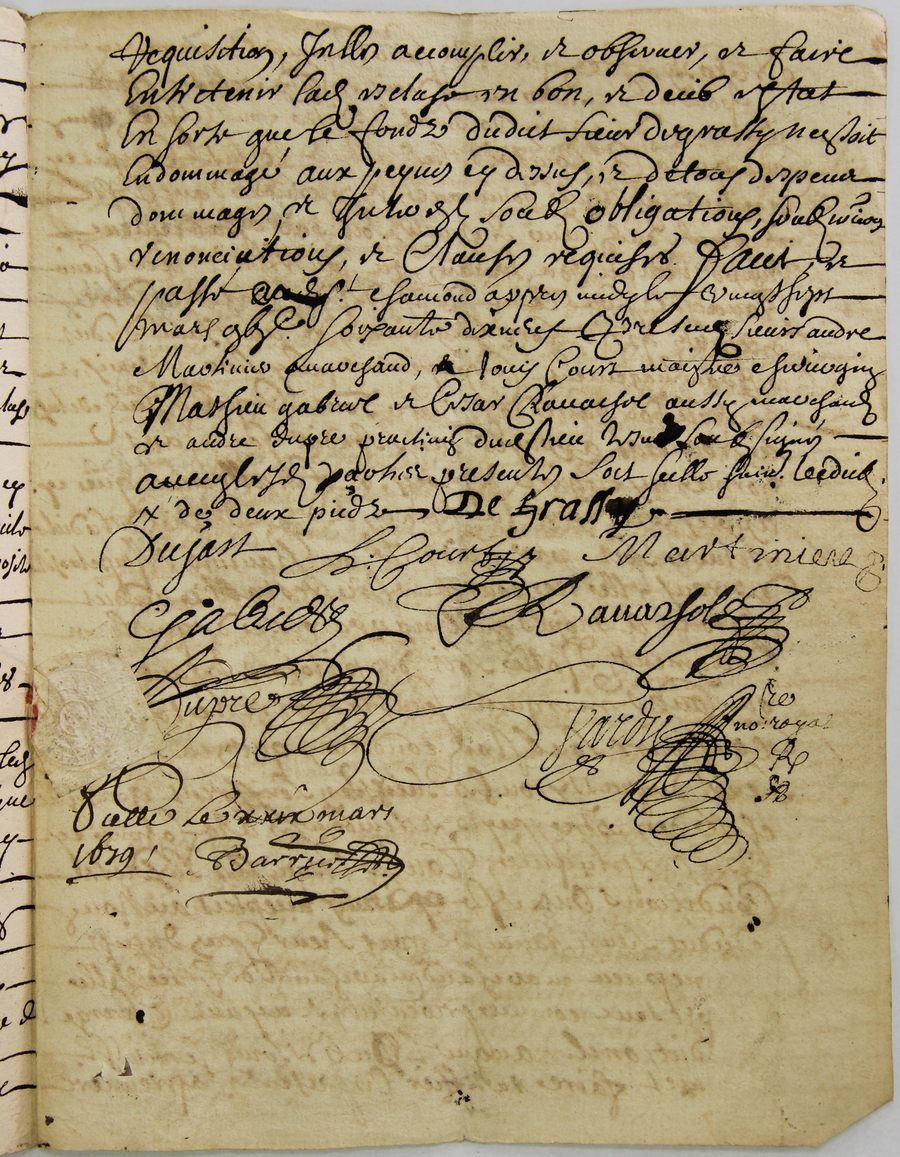 Requisition, Icelles acomplir, et observer, et faire
Entretenir lad. escluse en bon, et deub estat
En sorte que le fondz dudict sieur degrassy ne soit
Endommagé aux peynes cy dessus, et de tous despens
dommages et Interestz soubz obligations, soubz
renonciations, et Clauses requises faict, et
passé aud. St. chamond appres midy le vingt sept
mars soixante dix neuf sieurs andre
Martinier marchand, et louis Court maistre chirurgien
Mathieu gabriel et Cesar Ravachol aussy marchand
et andre dupre praticien dud. lieu soubz signés
parties presentes soit
de deux piedz De Grassy
Dujast L. Court Martinier
Gabriel C Ravachol
Dupré Vardy no.re royal
Scellé le xxix mars
1679 Barrieu